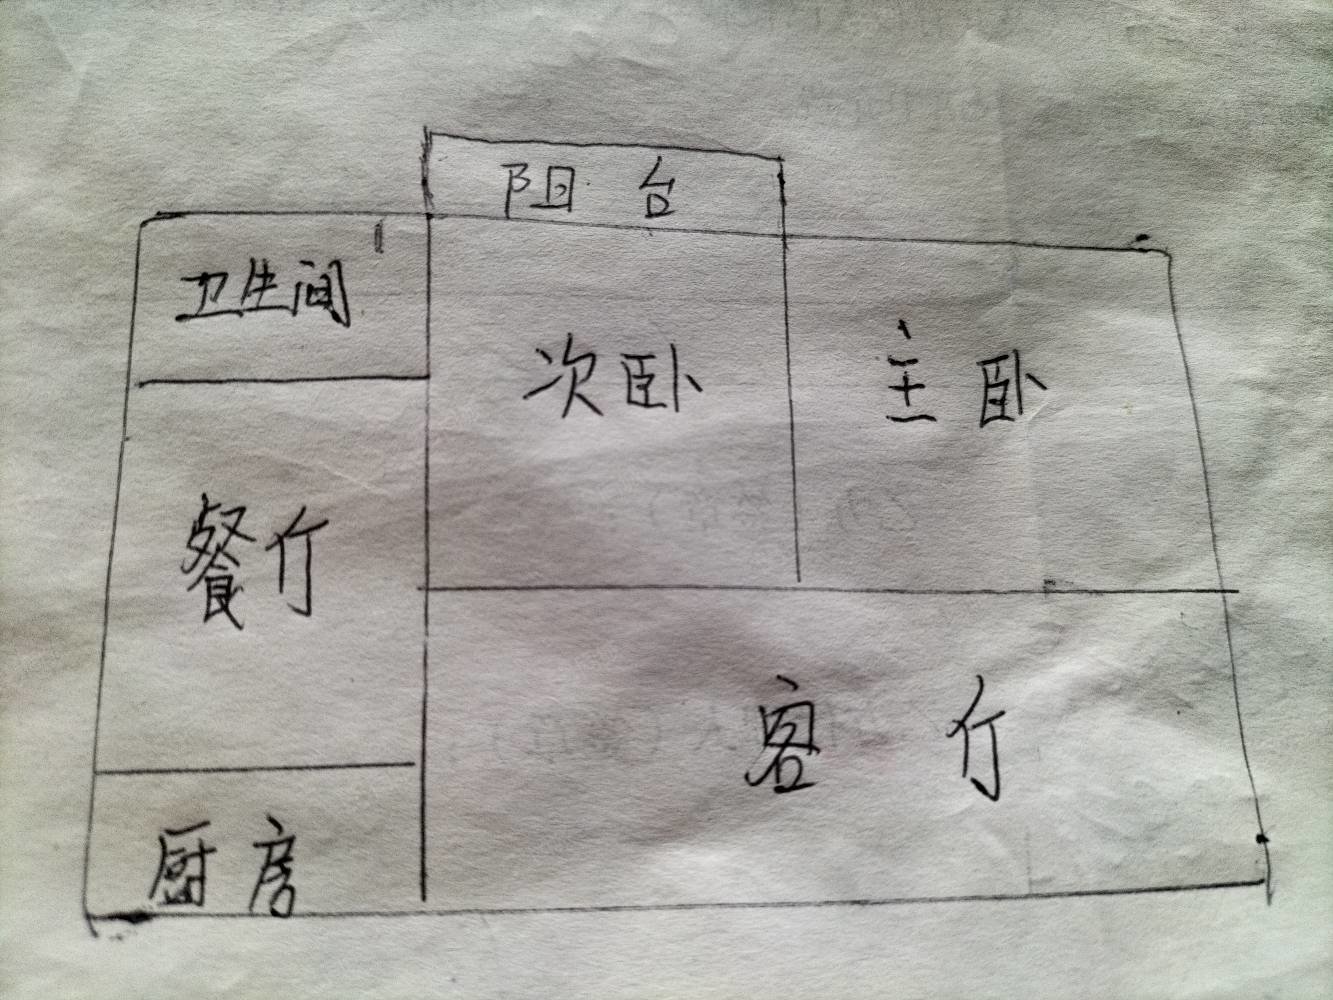 阳台
卫生间
次卧
主卧
餐厅
客厅
厨房